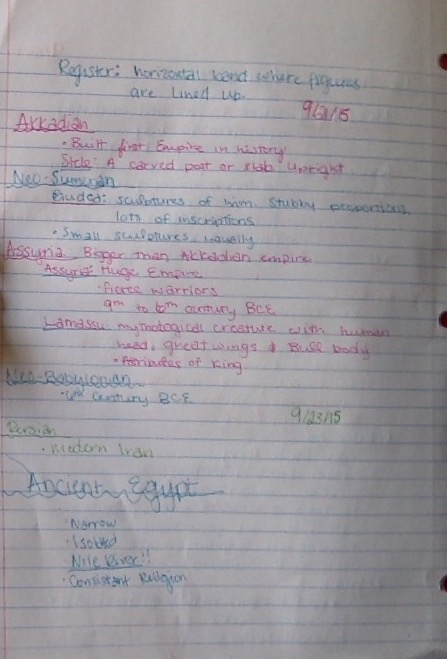 Register: horizontal band where figures
are lined up.
9/21/15
Akkadian
• Built first Empire in history
Stele: A carved post or slab upright
Neo-Sumerian
sculptures of him. Stubby proportions,
lots of inscriptions
• Small sculptures, usually
Assyria Bigger than Akkadian empire
Assyria: Huge Empire
• fierce warriors
9th to 6th century BCE
Lamassu: mythological creature with human
head, great wings & Bull body
• Attributes of King
Neo-Babylonian
• century BCE
9/23/15
Persian
• modern Iran
Ancient Egypt
• Narrow
• Isolated
Nile River!!
• Consistent Religion